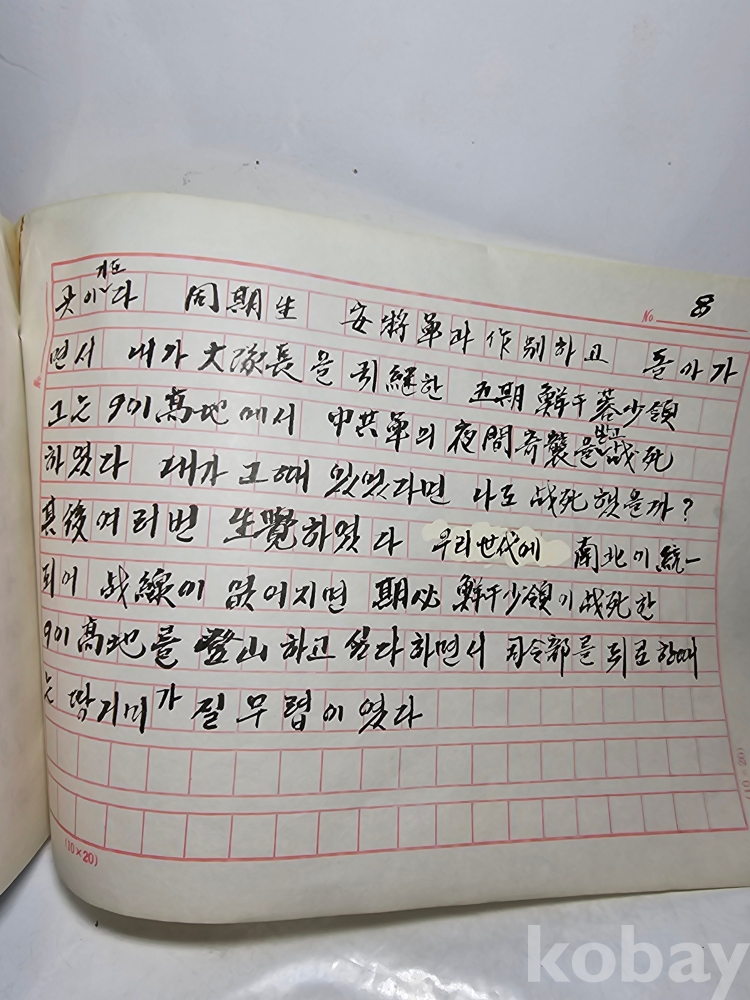 No. 8
곳이기도다 同期生 安將軍과 作別하고 돌아가
면서 내가 大隊長을 引継한 五期 鮮于 少領
그는 901高地에서 中共軍의 夜間奇襲을받고 战死
하였다 내가 그때 있었다면 나도 战死했을까?
其後여러번 生覺하였다 우리世代에 南北이 統一
되어 战線이 없어지면 期必 鮮于少領이 战死한
901高地를 登山하고 싶다하면서 司令部를 뒤로한때
는 땅거미가 질무렵이였다
(10×20)
(10×20)
kobay